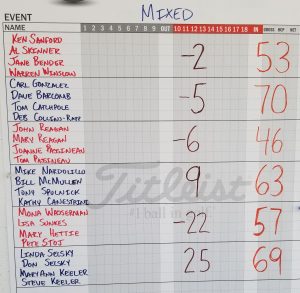 EVENT MIXED
NAME 1 2 3 4 5 6 7 8 9 OUT 10 11 12 13 14 15 16 17 18 IN GROSS HCP NET
KEN SANFORD
AL SKINNER
JANE BENDER
WARREN WINSLOW
-2 53
CARL GONZALEZ
DAVE BARCOMB
TOM CATHPOLE
DEB COLLINS-RATY
-5 70
JOHN REAGAN
MARY REAGAN
JOANNE PATINEAU
TOM PATINEAU
-6 46
MIKE NARDOLILLO
BILL MCMULLEN
TONY SPOLNICK
KATHY CANESTRINI
9 63
Titleist
#1 ball in
MONA WASSERMAN
LISA SUNKES
MARY HETTIE
PETE STOJ
-22 57
LINDA SELSKY
DON SELSKY
MARYANN KEELER
STEVE KEELER
25 69